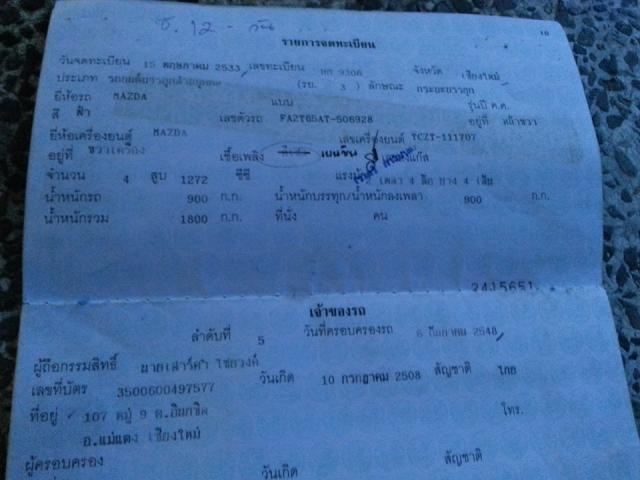 ช. 12 - วัน
10
รายการจดทะเบียน
วันจดทะเบียน 15 พฤษภาคม 2533 เลขทะเบียน 9306 จังหวัด เชียงใหม่
ประเภท รถยนต์บรรทุกส่วนบุคคล (รย. 3 ) ลักษณะ กระบะบรรทุก
ยี่ห้อรถ MAZDA แบบ รุ่นปี ค.ศ.
สี ฟ้า เลขตัวรถ FA2T65AT-506928 อยู่ที่ หน้าขวา
ยี่ห้อเครื่องยนต์ MAZDA เลขเครื่องยนต์ TCZT-111707
อยู่ที่ ขวาเครื่อง เชื้อเพลิง เบนซิน
จำนวน 4 สูบ 1272 ซีซี แรงม้า 2 เพลา 4 ล้อ ยาง 4 เส้น
น้ำหนักรถ 900 ก.ก. น้ำหนักบรรทุก/น้ำหนักลงเพลา 900 ก.ก.
น้ำหนักรวม 1800 ก.ก. ที่นั่ง คน
2415651
เจ้าของรถ
ลำดับที่ 5 วันที่ครอบครองรถ 6 กันยายน 2548
ผู้ถือกรรมสิทธิ์ นาย ไชยวงค์
เลขที่บัตร 3500600497577 วันเกิด 10 กรกฎาคม 2508 สัญชาติ ไทย
ที่อยู่ 107 หมู่ 9 ต.อินทขิล โทร.
อ.แม่แตง เชียงใหม่
ผู้ครอบครอง วันเกิด สัญชาติ